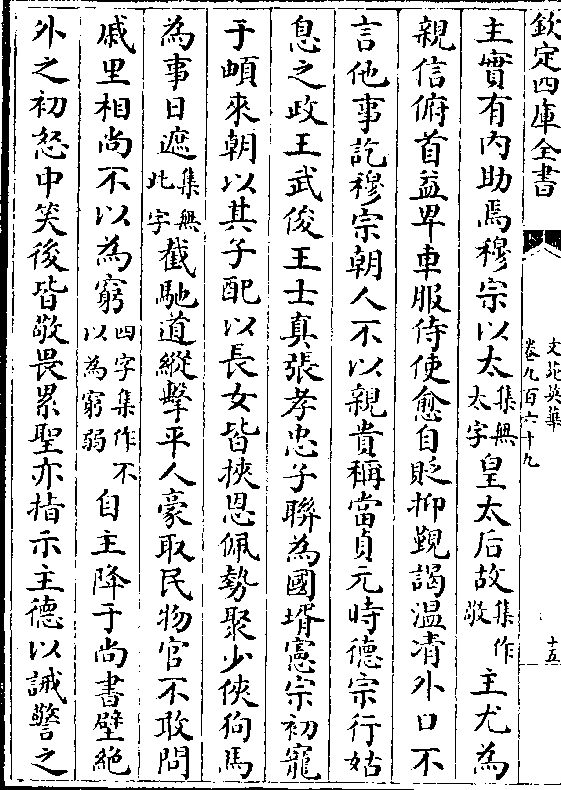 欽定四庫全書
文苑英華
卷九百六十九
十五
主實有内助焉穆宗以太集無太字皇太后故集作敬主尤為
親信俯首益卑車服侍使愈自貶抑覲謁温凊外口不
言他事訖穆宗朝人不以親貴稱當貞元時德宗行姑
息之政王武俊王士真張孝忠子聯為國壻憲宗初寵
于頔來朝以其子配以長女皆挾恩佩勢聚少俠狗馬
為事日遮集無此字截馳道縱擊平人豪取民物官不敢問
戚里相尚不以為窮四字集作不以為窮弱自主降于尚書壁絶
外之初怒中笑後皆敬畏累聖亦指示主德以誡警之